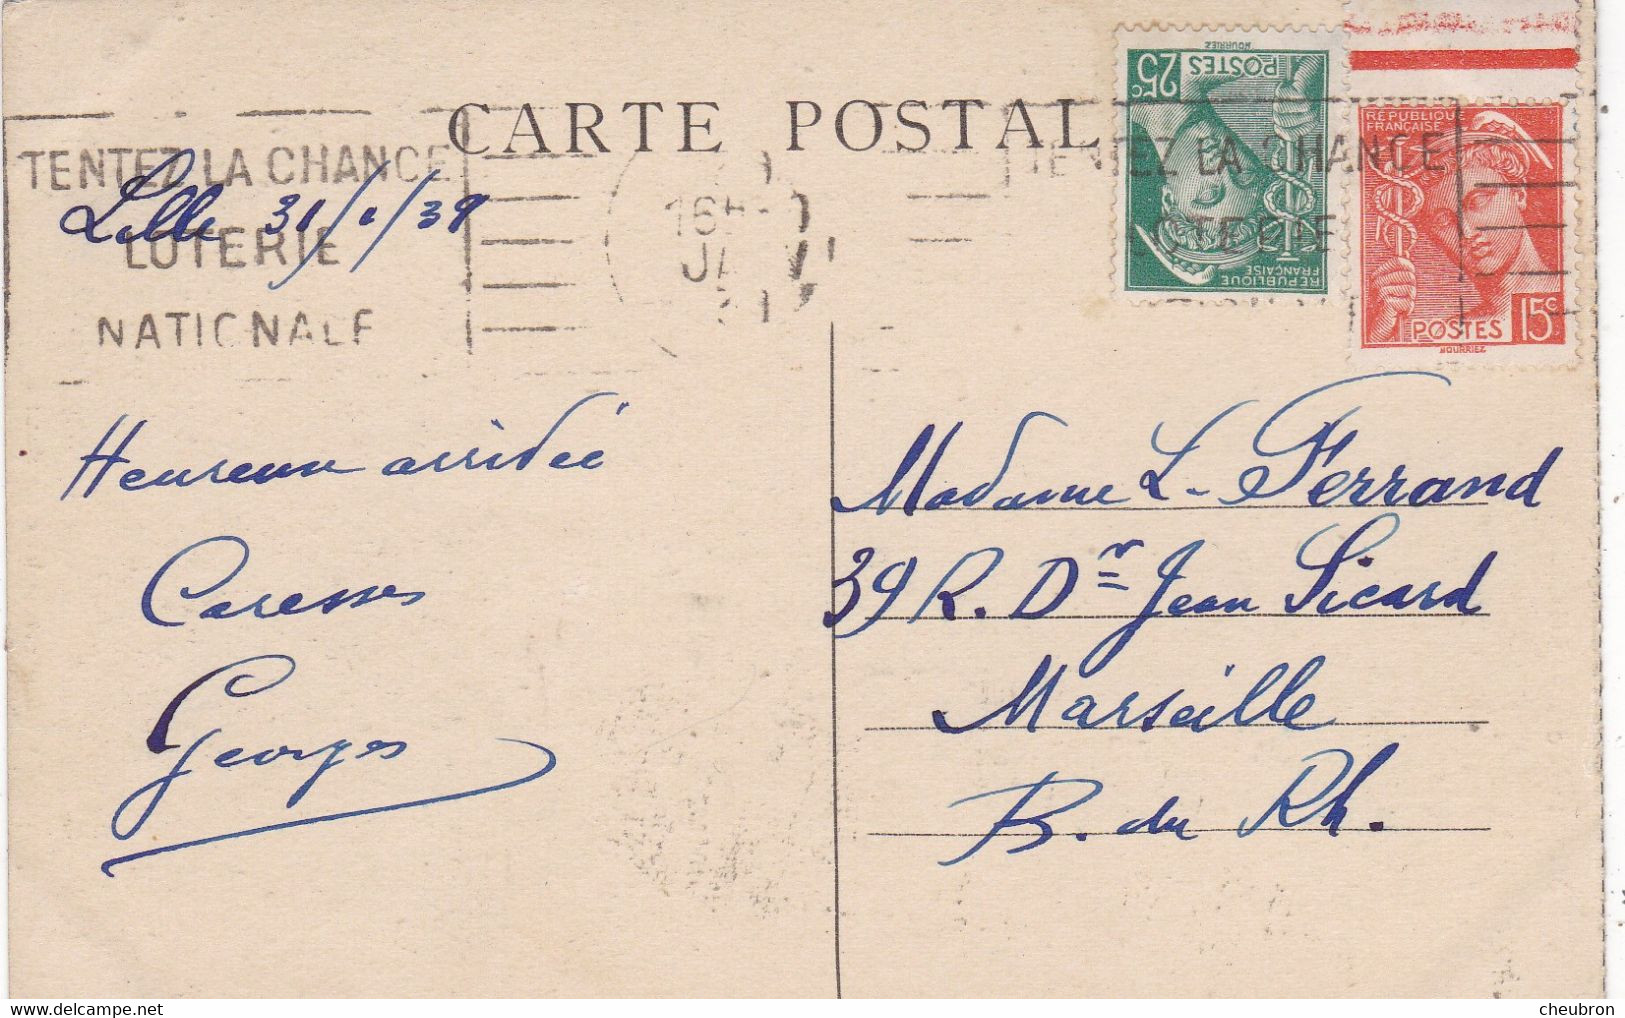 CARTE POSTALE
TENTEZ LA CHANCE
LOTERIE
NATIONALE
Lille 31/1/39
16H
JANV
TENTEZ LA CHANCE
LOTERIE
25c
POSTES
NOURRIEZ
RÉPUBLIQUE
FRANÇAISE
RÉPUBLIQUE
FRANÇAISE
POSTES 15c
NOURRIEZ
Heureuse arrivée
Caresses
Georges
Madame L. Ferrand
39 R. Dr Jean Sicard
Marseille
B. du Rh.
https://www.delcampe.net
cheubron